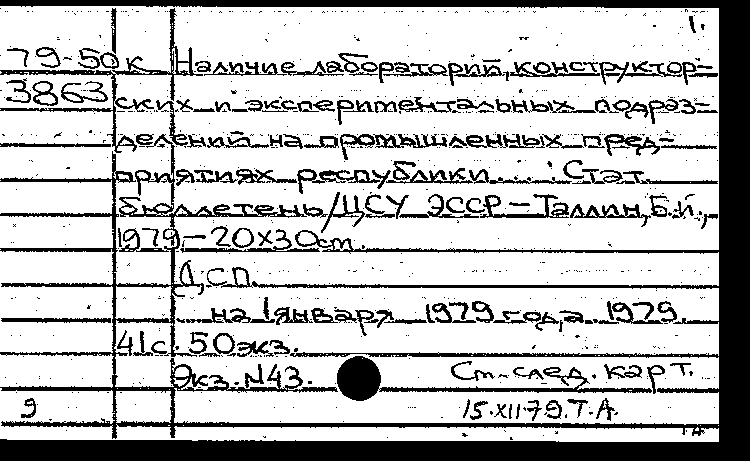 1.
79-50к Наличие лабораторий, конструктор-
3863 ских и экспериментальных подраз-
делений на промышленных пред-
приятиях республики... : Стат.
бюллетень/ЦСУ ЭССР - Таллин, Б.и.,
1979 - 20х30см.
Д,СП.
на 1 января 1979 года 1979.
41с. 50экз.
Экз. N43. См. след. карт.
9 15.XII79.Т.А.